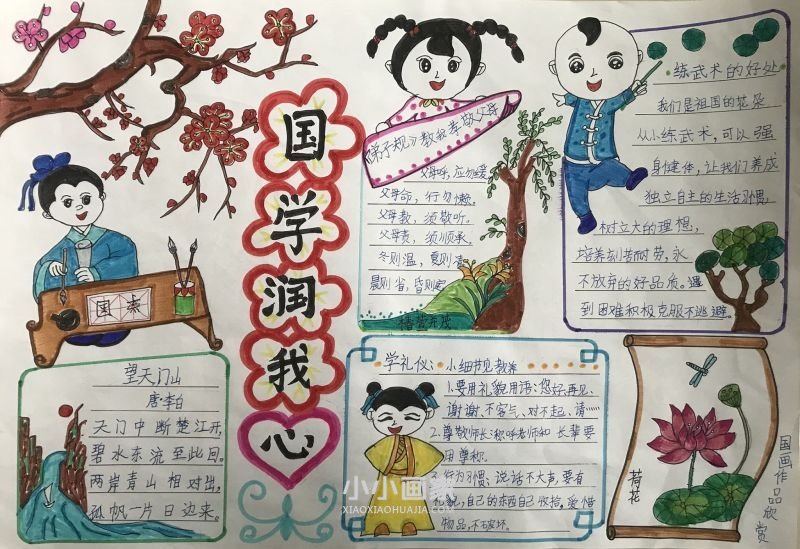 国学润我心
国
泰
望天门山
唐·李白
天门中断楚江开,
碧水东流至此回。
两岸青山相对出,
孤帆一片日边来。
《弟子规》教我孝敬父母
父母呼,应勿缓,
父母命,行勿懒。
父母教,须敬听。
父母责,须顺承。
冬则温,夏则凊
晨则省,昏则定
练武术的好处
我们是祖国的花朵
从小练武术,可以强
身健体,让我们养成
独立自主的生活习惯,
树立大的理想,
培养刻苦耐劳,永
不放弃的好品质。遇
到困难积极克服不逃避。
学礼仪:小细节见教养
1.要用礼貌用语:您好、再见、
谢谢、不客气、对不起、请……
2.尊敬师长:称呼老师和长辈要
用尊称.
行为习惯,说话不大声,要有
自己的东西自己收拾。爱惜
物品,不破坏.
荷花
国画作品欣赏
小小画家
XIAOXIAOHUAJIA.COM